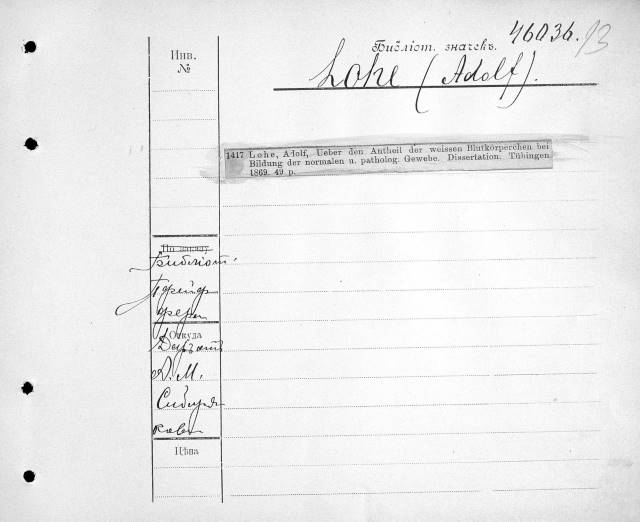 46036.
Библіот. значекъ.
Инв.
№
Lohe (Adolf).
1417 Lohe, Adolf, Ueber den Antheil der weissen Blutkörperchen bei
Bildung der normalen u. patholog. Gewebe. Dissertation. Tübingen
1869. 49 p.
Библіот.
Откуда
А. М.
Сибиря
кова
Цѣна